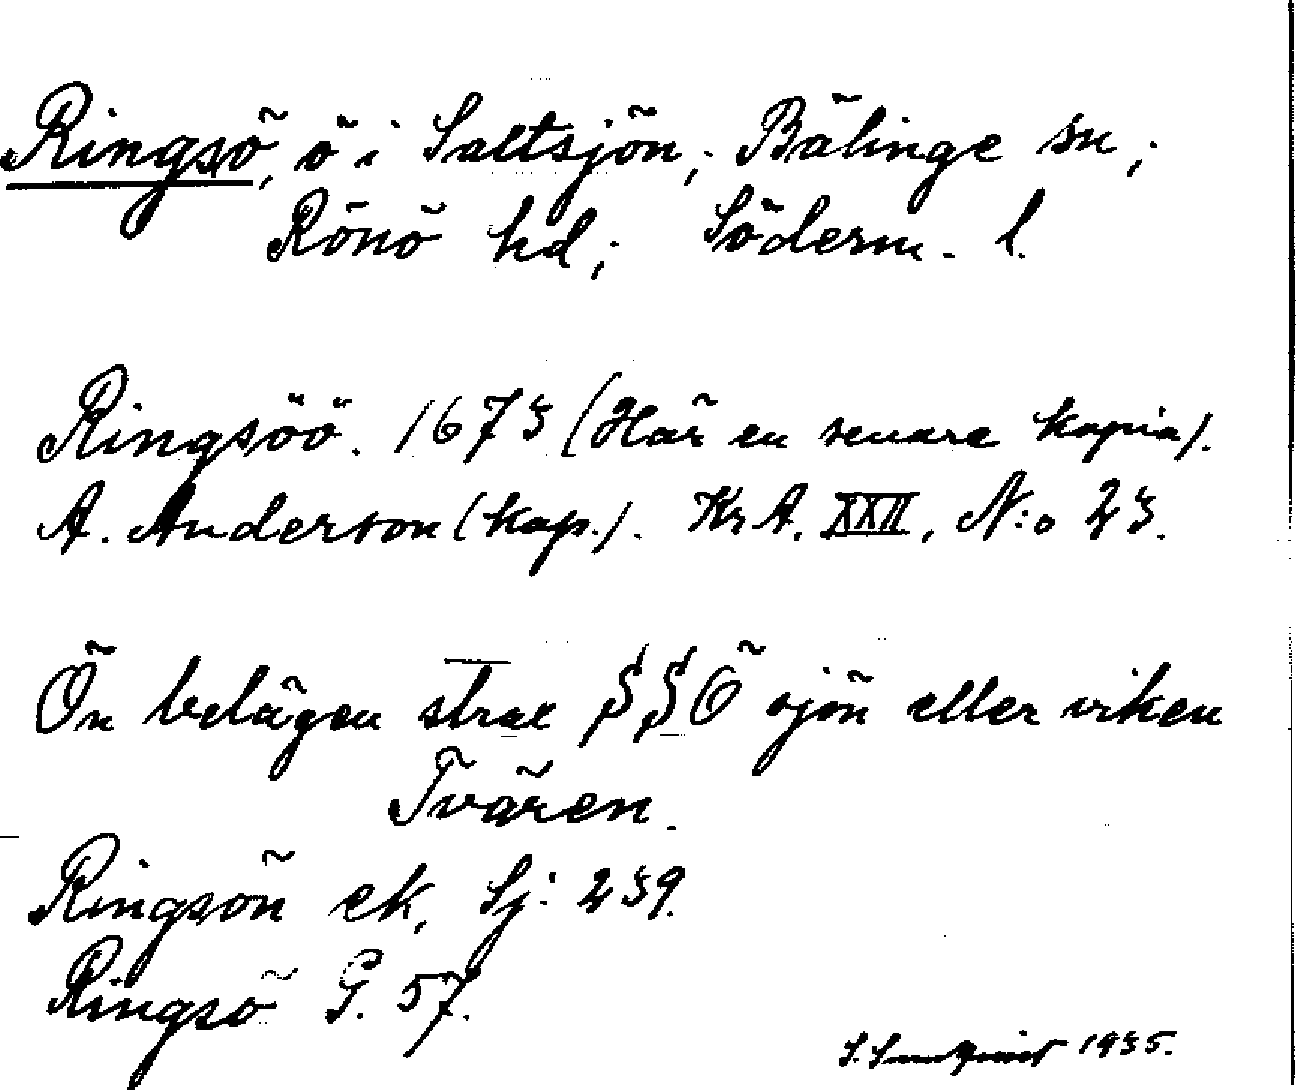 Ringsö, ö i Saltsjön, Bälinge sn;
Rönö hd; Söderm. l.
Ringsöö. 1673 (Här en senare kopia).
A. Anderson (kop.). Kr A. XXII, N:o 23.
Ön belägen strax SSÖ sjön eller viken
Tvären.
Ringsön ek, Sj: 239.
Ringsö G. 57.
S. 1935.